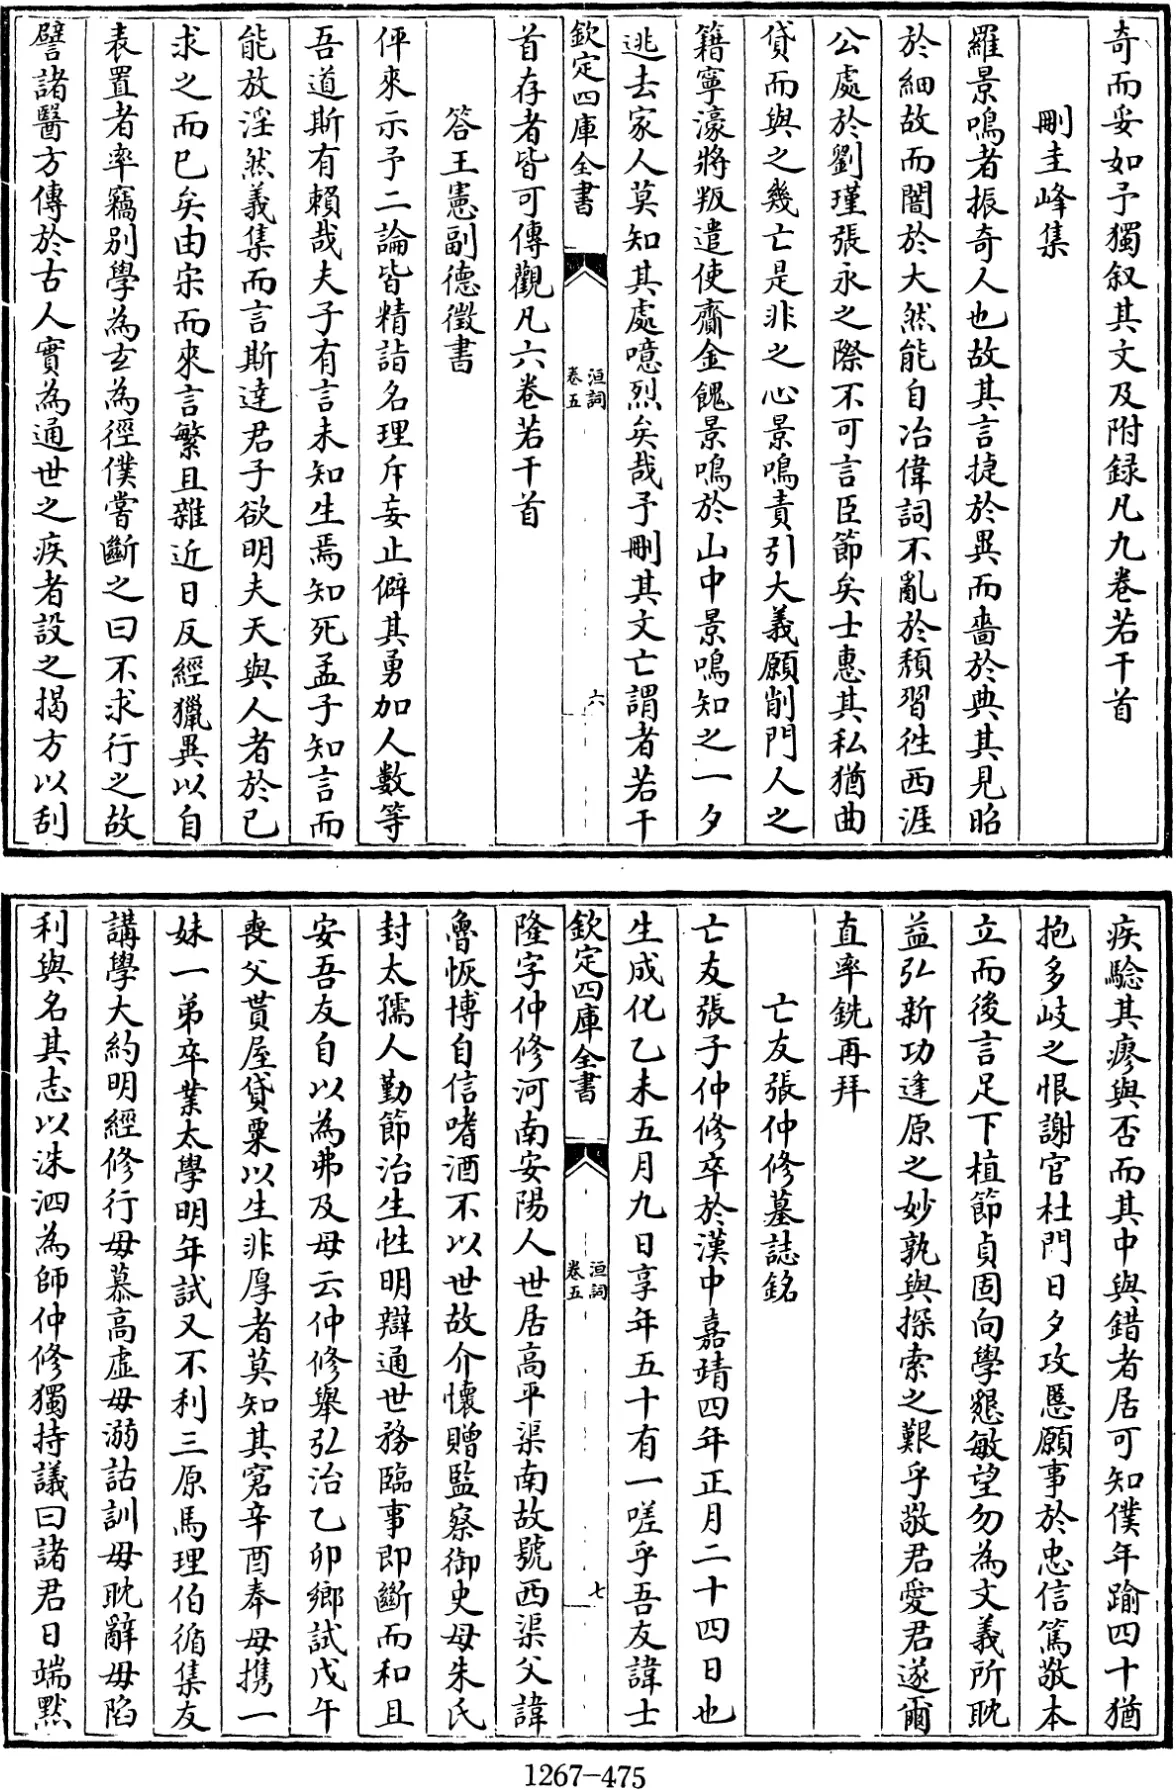 奇而妥如予獨叙其文及附録凡九卷若干首
刪圭峰集
羅景鳴者振奇人也故其言捷於異而嗇於典其見昭
於細故而闇於大然能自冶偉詞不亂於頽習徃西涯
公處於劉瑾張永之際不可言臣節矣士惠其私猶曲
貸而與之幾亡是非之心景鳴責引大義願削門人之
籍寧濠將叛遣使齎金餽景鳴於山中景鳴知之一夕
逃去家人莫知其處噫烈矣哉予刪其文亡謂者若干
欽定四庫全書
洹詞
卷五
六
首存者皆可傳觀凡六卷若干首
答王憲副德徵書
伻來示予二論皆精詣名理斥妄止僻其勇加人數等
吾道斯有賴哉夫子有言未知生焉知死孟子知言而
能放淫然義集而言斯達君子欲明夫天與人者於已
求之而已矣由宋而來言繁且雜近日反經獵異以自
表置者率竊别學為玄為徑僕嘗斷之曰不求行之故
譬諸醫方傳於古人實為通世之疾者設之揭方以刮
疾驗其瘳與否而其中與錯者居可知僕年踰四十猶
抱多岐之恨謝官杜門日夕攻慝願事於忠信篤敬本
立而後言足下植節貞固向學懇敏望勿為文義所眈
益弘新功逢原之妙孰與探索之艱乎敬君愛君遂爾
直率銑再拜
亡友張仲修墓誌銘
亡友張子仲修卒於漢中嘉靖四年正月二十四日也
生成化乙未五月九日享年五十有一嗟乎吾友諱士
欽定四庫全書
洹詞
卷五
七
隆字仲修河南安陽人世居高平渠南故號西渠父諱
魯恢博自信嗜酒不以世故介懷贈監察御史母朱氏
封太孺人勤節治生性明辯通世務臨事即斷而和且
安吾友自以為弗及母云仲修舉弘治乙卯鄉試戊午
喪父貰屋貸粟以生非厚者莫知其窘辛酉奉母携一
妹一弟卒業太學明年試又不利三原馬理伯循集友
講學大約明經修行毋慕高虛毋溺詁訓毋耽辭毋陷
利與名其志以洙泗為師仲修獨持議曰諸君日端黙
1267-475